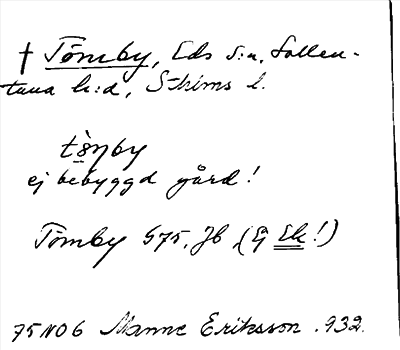 † Tömby, Eds s:n, Sollen-
tuna h:d, Sthlms l.
tö̀nby
ej bebyggd gård!
Tömby G75, Jb (Ej Ek!)
75 NO 6 Manne Eriksson .932.